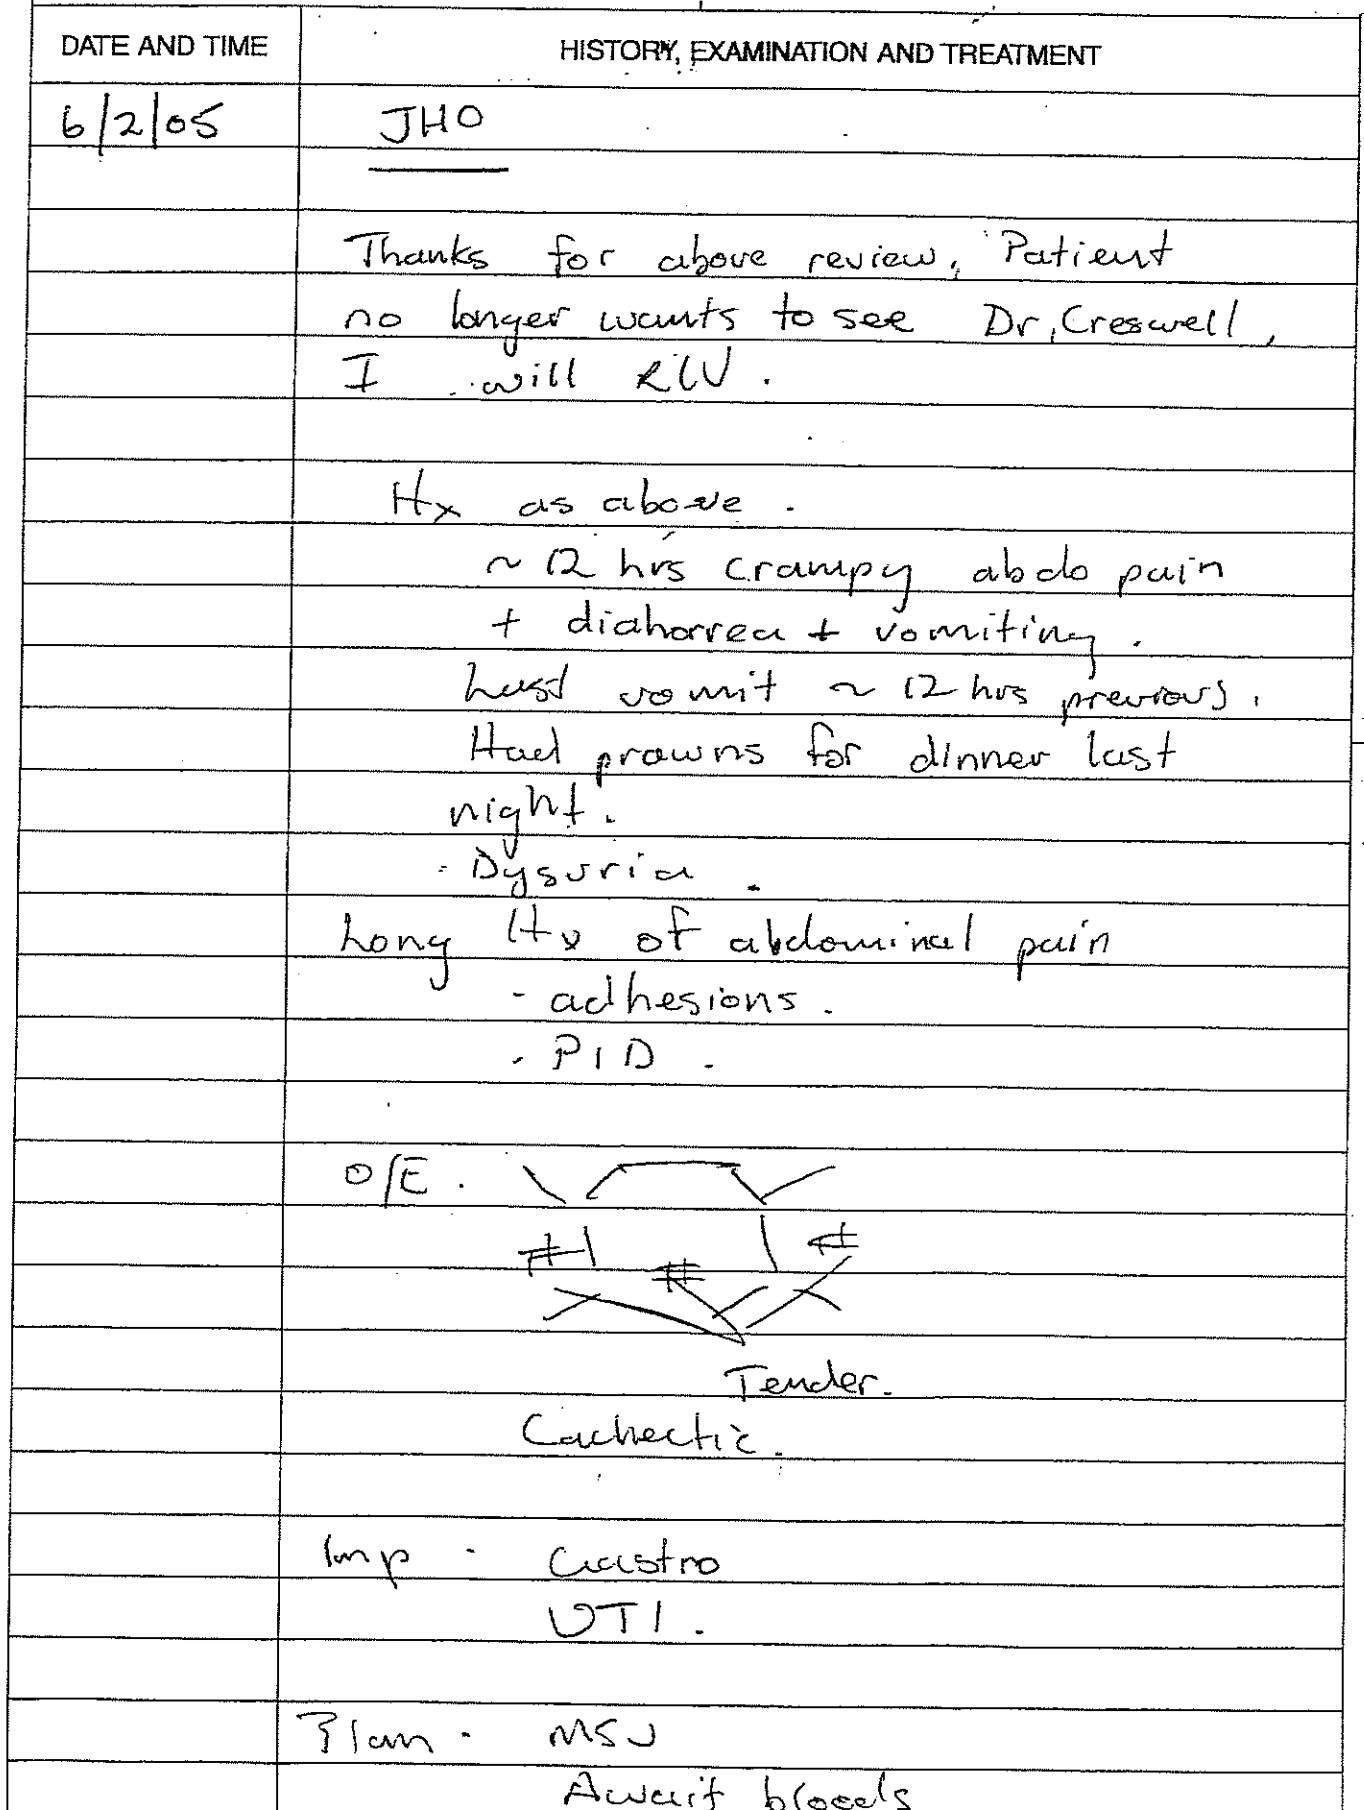 DATE AND TIME HISTORY, EXAMINATION AND TREATMENT
6/2/05 JHO
Thanks for above review, Patient
no longer wants to see Dr, Creswell,
I will R/V.
Hx as above.
~ 12 hrs crampy abdo pain
+ diahorrea + vomiting.
Last vomit ~ 12 hrs previous.
Had prawns for dinner last
night.
- Dysuria.
Long Hx of abdominal pain
- adhesions.
- PID.
O/E.
# #
#
Tender.
Cachectic.
Imp - Gastro
UTI.
Plan - MSU
Await bloods